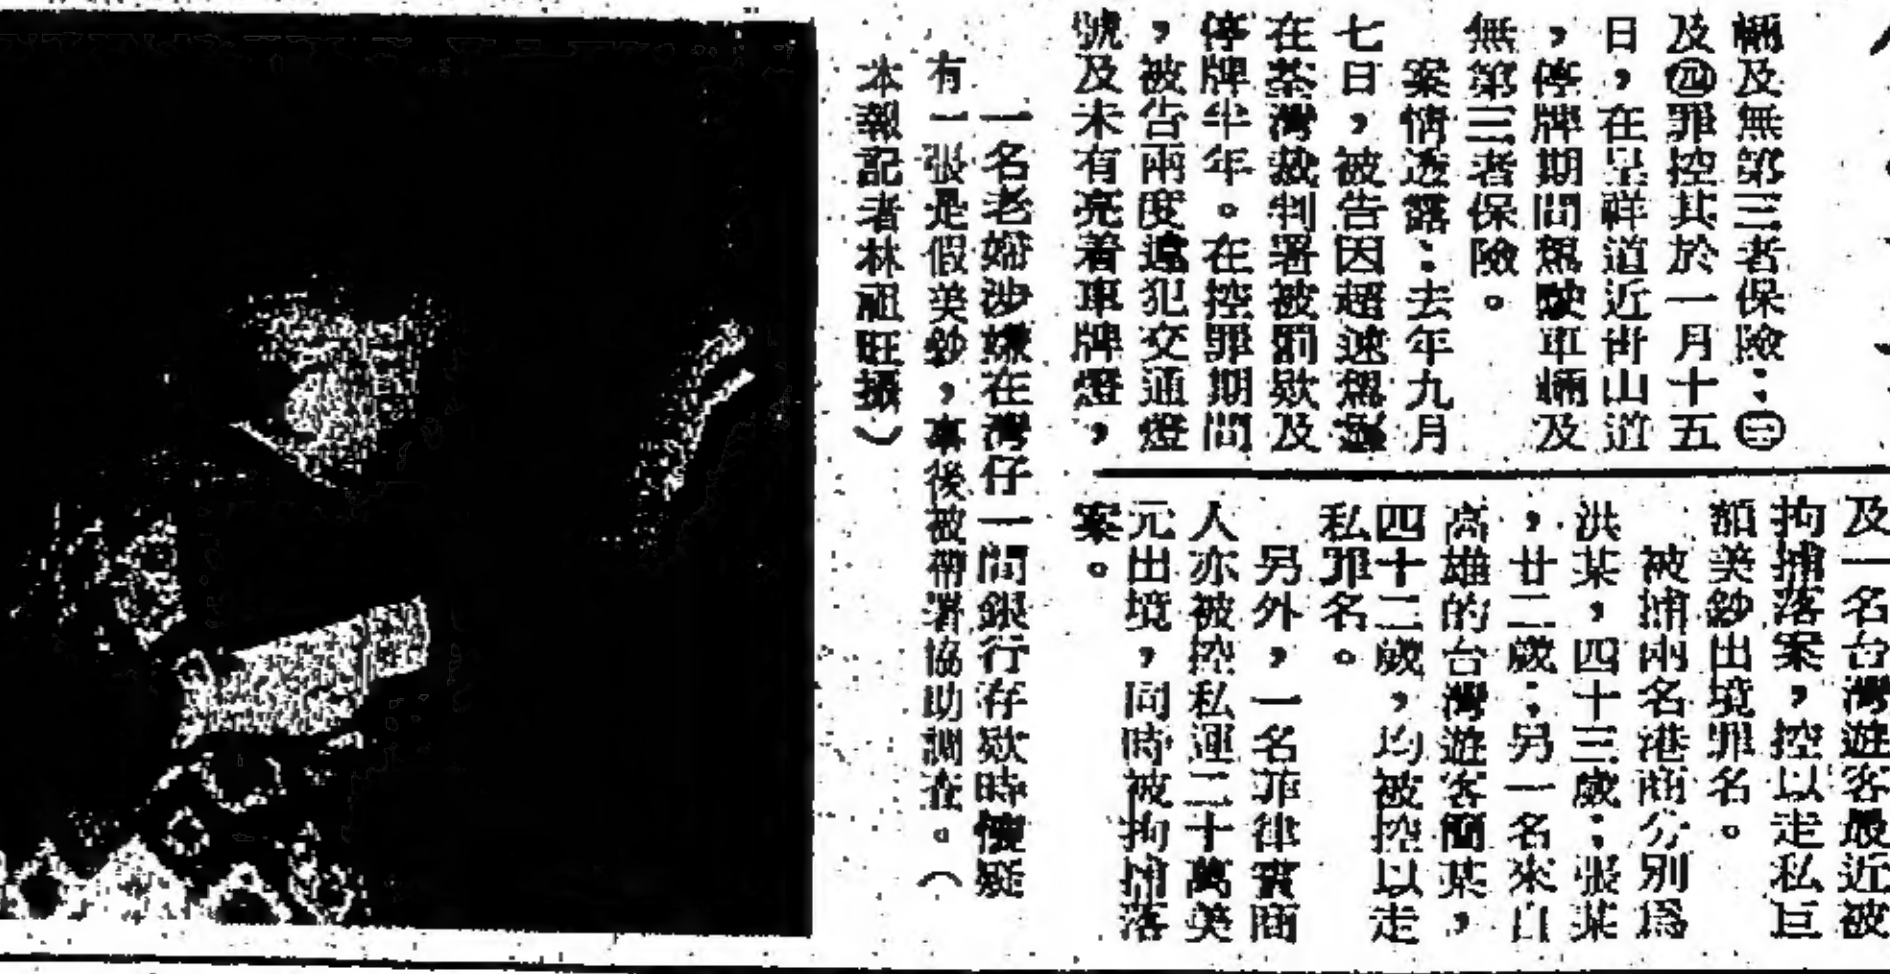 輛及無第三者保險；㊂
及㊃罪控其於一月十五
日，在呈祥道近卋山道
，停牌期間駕駛車輛及
無第三者保險。
案情透露：去年九月
七日，被告因超速駕駛
在荃灣裁判署被罰欵及
停牌半年。在控罪期間
，被告兩度違犯交通燈
號及未有亮着車牌燈，
及一名台灣遊客最近被
拘捕落案，控以走私巨
額美鈔出境罪名。
被捕兩名港商分別爲
洪某，四十三歲；張某
，廿二歲；另一名來自
高雄的台灣遊客簡某，
四十二歲，均被控以走
私罪名。
另外，一名菲律賓商
人亦被控私運二十萬美
元出境，同時被拘捕落
案。
一名老婦涉嫌在灣仔一間銀行存欵時懷疑
有一張是假美鈔，事後被帶署協助調查。（
本報記者林祖旺攝）